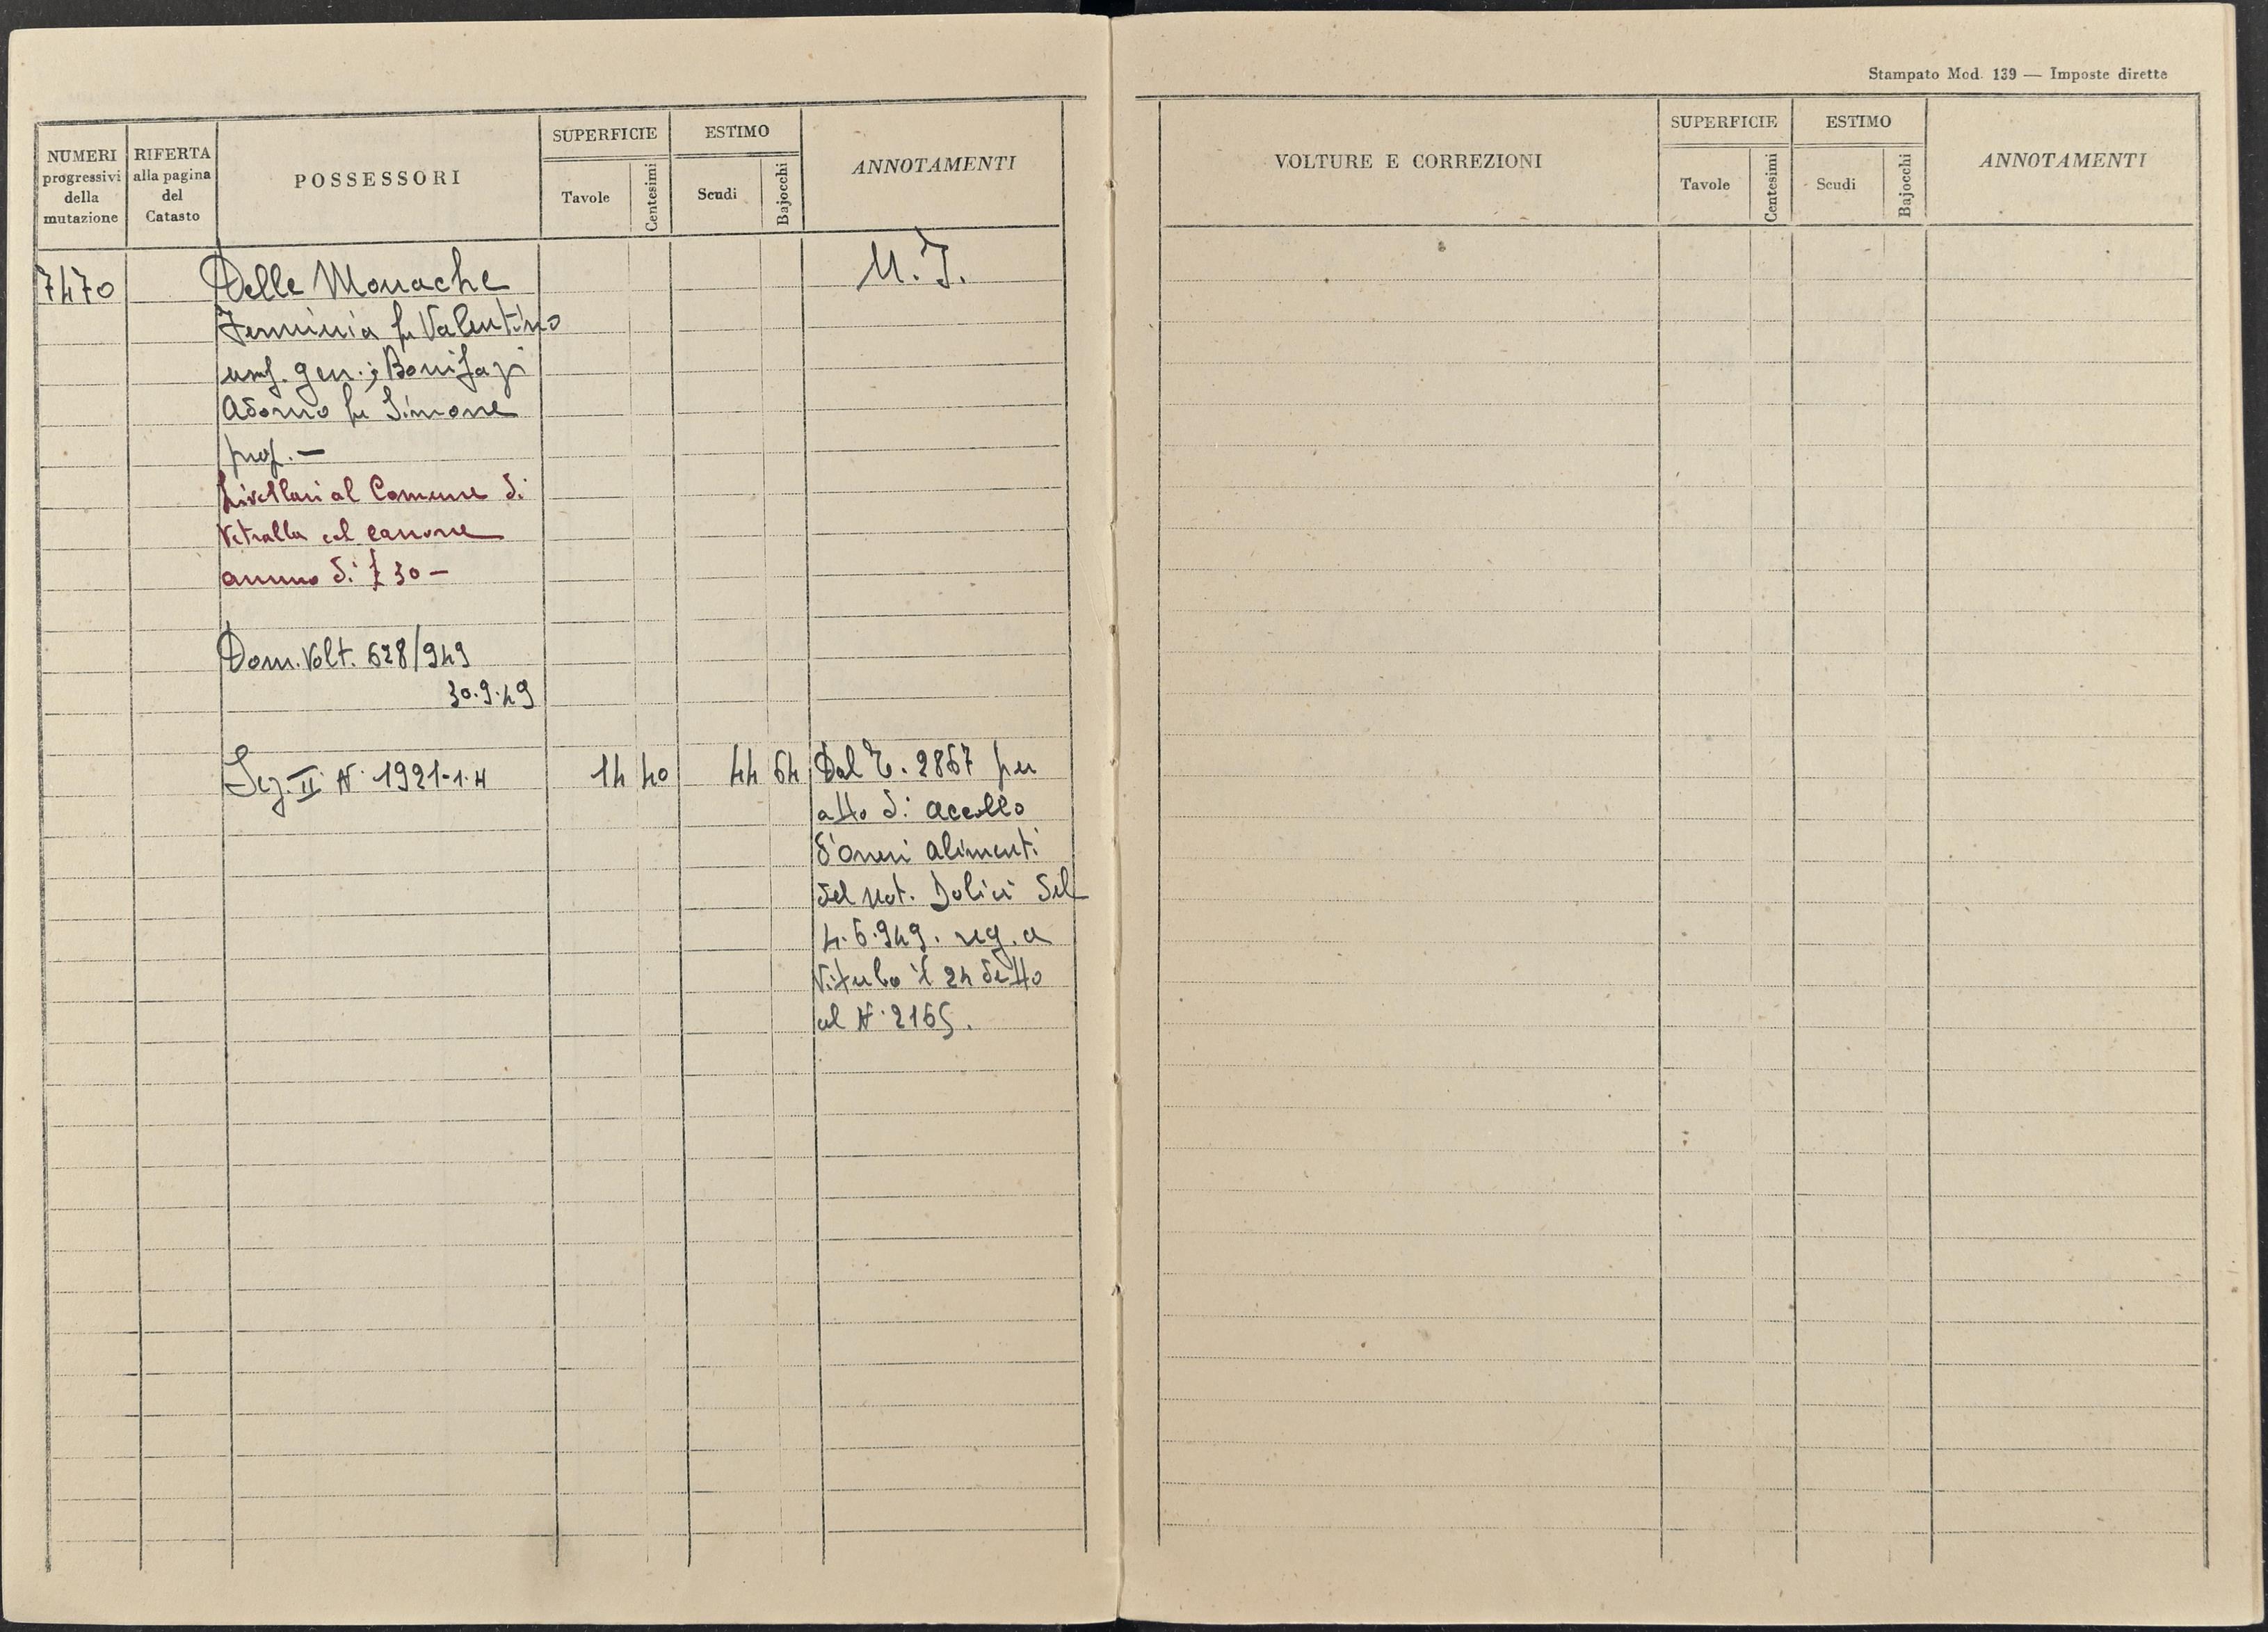 NUMERI
progressivi
della
mutazione
RIFERTA
alla pagina
del
Catasto
POSSESSORI
SUPERFICIE
Tavole
Centesimi
ESTIMO
Scudi
Bajocchi
ANNOTAMENTI
7470
Delle Monache
fu Valentino
usuf. gen.; Bonifazi
Adorno fu Simone
prop. —
Livellari al Comune di
Vetralla col canone
annuo di £ 30 —
Dom. Volt. 628/949
30.9.49
Sez. II N. 1921-1.4
14 40
44 64
M. I.
Dal T. 2867 per
atto di accollo
d'oneri alimenti
del Not. Dolici del
4.6.949. reg. a
Viterbo il 24 detto
al N. 2165.
Stampato Mod. 139 — Imposte dirette
VOLTURE E CORREZIONI
SUPERFICIE
Tavole
Centesimi
ESTIMO
Scudi
Bajocchi
ANNOTAMENTI